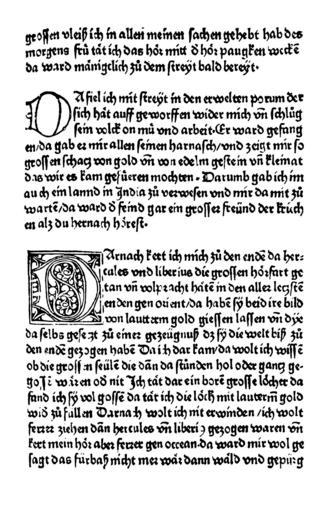 grossen vleiß ich in allen meinen sachen gehebt hab des
morgens frů tåt ich das hör mitt ð hör paugken wickē
da ward mänigclich zů dem streyt bald bereyt.
DA fiel ich mit streyt in den erwelten porum der
sich håt auff geworffen wider mich vn̄ schlůg
sein volck on mů vnd arbeit. Er ward gefang
en/da gab er mir allen seinen harnasch/vnd zeigt mir so
grossen schacz von gold vn̄ von edelm gestein vn̄ kleinat
das wir es kam gefüren mochten. Darumb gab ich im
auch ein lannd in India zů verwesen vnd mir da mit zů
warten/da ward ð feind gar ein grosser freünd der kruch
en alz du hernach hörest.
DArnach kert ich mich zů den ende da her
cules vnd liberius die grossen hörfart ge
tan vn̄ volpracht håtē in den aller leczstē
enden gen orient/da habē sy beid ire bild
von lautterm gold giessen lassen vn̄ dye
da selbs gesetzt zů einer gezeügnuß dz sy die welt biß zů
den ende gezogen habē Da ich dar kam/da wolt ich wissē
ob die grossn̄ seülē die dān da stůnden hol oder gancz ge-
gossē wåren oð nit Ich tåt dar ein borē grosse löcher da
fand ich sy vol gossē da tåt ich die löch mit lautterm̄ gold
wið zů fullen Darnach wolt ich mit erwinden/ich wolt
ferrer ziehen dan̄ hercules vn̄ liberi9 gezogen waren vn̄
kert mein hör aber ferrer gen occean. da ward mir wol ge
sagt das fürbaß nicht mer wår dann wåld vnd gepirg